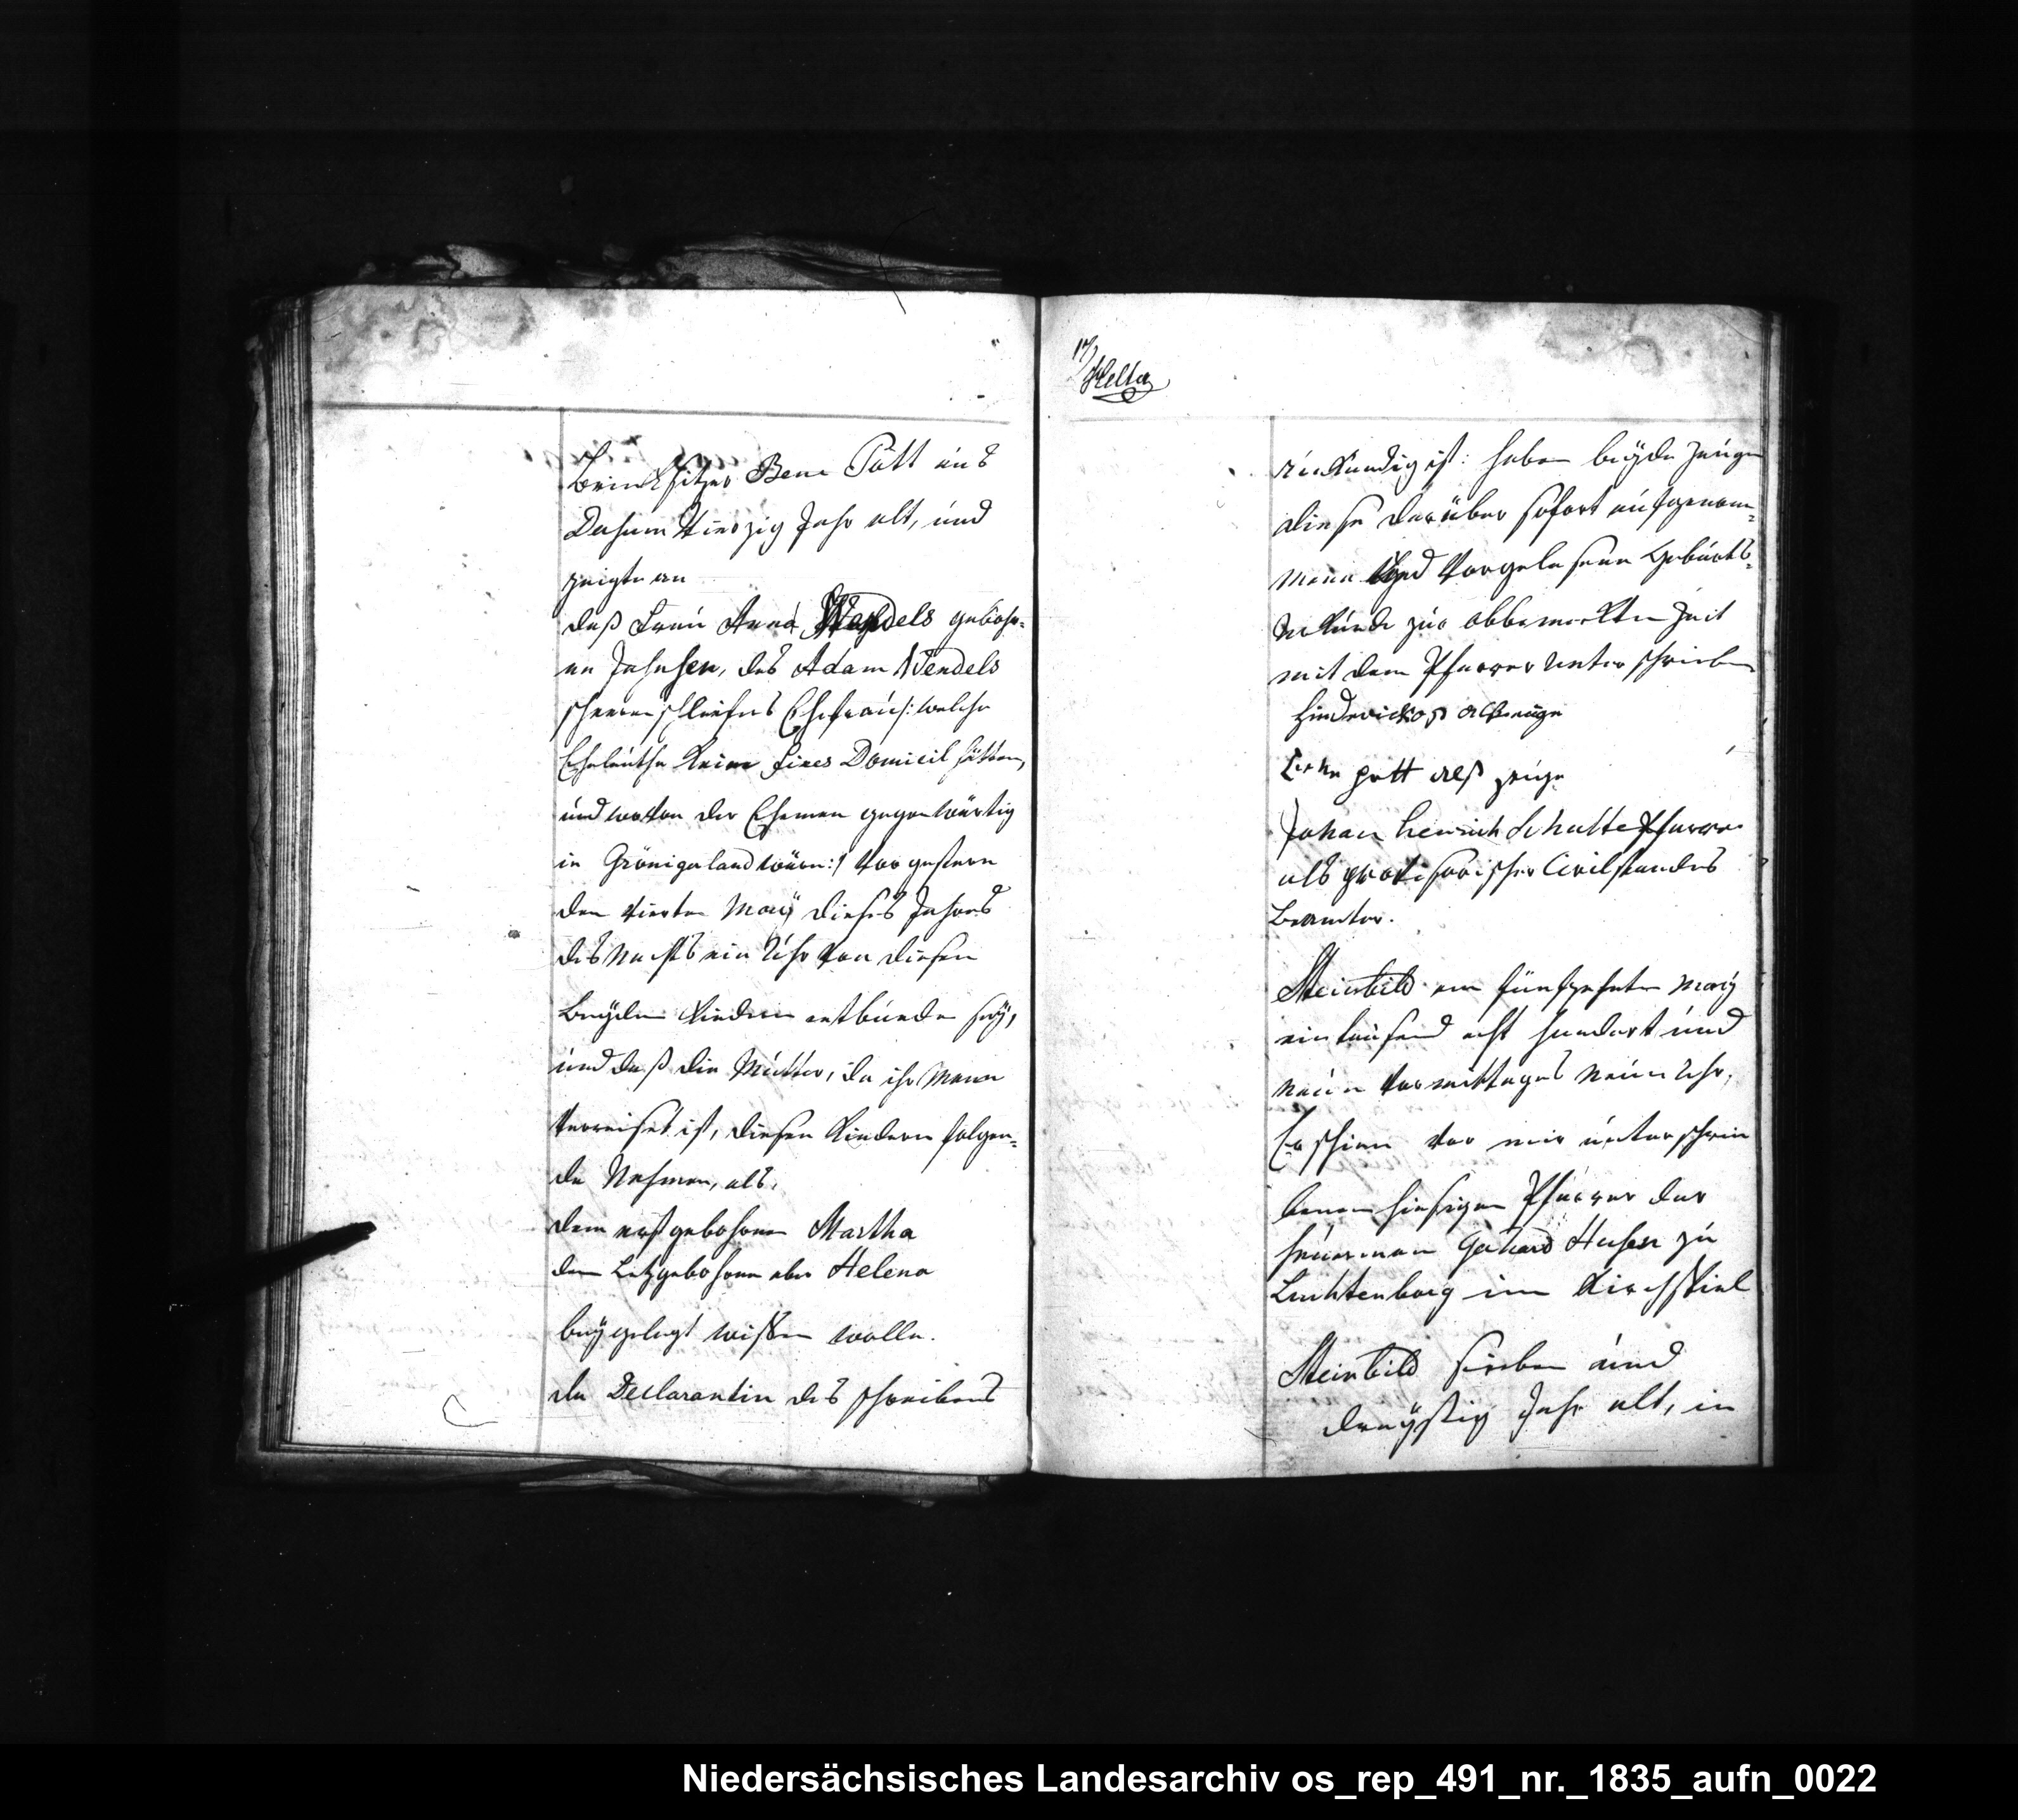 Brinksitzer Bene Pott aus
Dersum Vierzig Jahr alt, und
zeigte an
daß Frau Anna Wendels gebohr-
ne Jansen, des Adam Wendels
scheerenschleifers Ehefrau /: welche
Eheleuthe keine fixes Domicil hätten,
und wovon der Ehemann gegenwärtig
in Gröningerland wäre :/ vorgestern
den vierten May dieses Jahres
des Nachts ein Uhr von diesen
beyden Kindern entbunden sey,
und daß die Mutter, da ihr Mann
verreiset ist, diesen Kindern folgen-
de Nahmen, als,
dem erstgebohrnen Martha
dem Letzgebohrnen aber Helena
beygelegt wißen wolle.
da Declarantin des schreibens
17
unkundig ist: haben beyde Zeugen
diese darüber sofort aufgenom-
mene und vorgelesene Geburts-
urkunde zur obbemerkten Zeit
mit dem Pfarrer unterschrieben
als Zeuge
Bene pott alß zeuge
Johan henrich Schulte Pfarrer
als provisorischer Civilstandes
Beamter.
Steinbild am fünfzehnten May
eintausend acht hundert und
neun vormittages neun Uhr,
Erschien vor mir unterschrie
benen hiesigen Pfarrer der
heuermann Gerhard Husen zu
Luchtenborg im Kirchspiel
Steinbild sieben und
dreyßig Jahr alt, in
Niedersächsisches Landesarchiv os_rep_491_nr._1835_aufn_0022